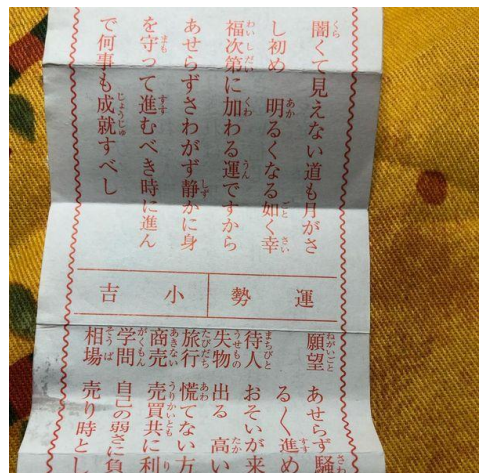 闇くて見えない道も月がさ
し初め　明るくなる如く幸
福次第に加わる運ですから
あせらずさわがず静かに身
を守って進むべき時に進ん
で何事も成就すべし
運勢　小吉
願望　あせらず騒
るく進め
待人　おそいが来
失物　出る　高い
旅行　慌てない方
商売　売買共に利
学問　自己の弱さに負
相場　売り時とし